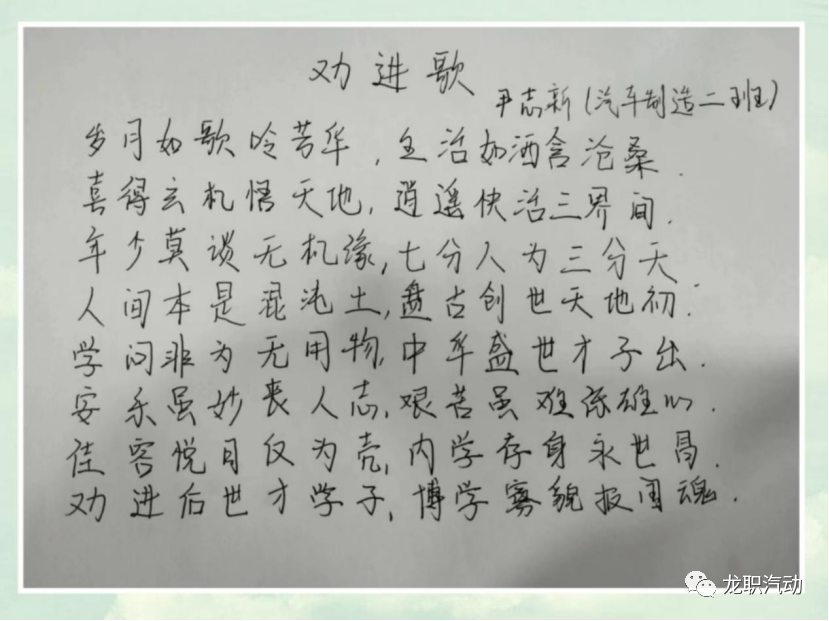 劝进歌
尹志新(汽车制造二班)
岁月如歌吟芳华,生活如酒含沧桑.
喜得玄机悟天地,逍遥快活三界间.
年少莫谈无机缘,七分人为三分天
人间本是混沌土,盘古创世天地初.
学问非为无用物,中华盛世才子出.
安乐虽妙丧人志,艰苦虽难添雄心.
佳容悦目仅为壳,内学存身永世昌.
劝进后世才学子,博学寡貌报国魂.
龙职汽动